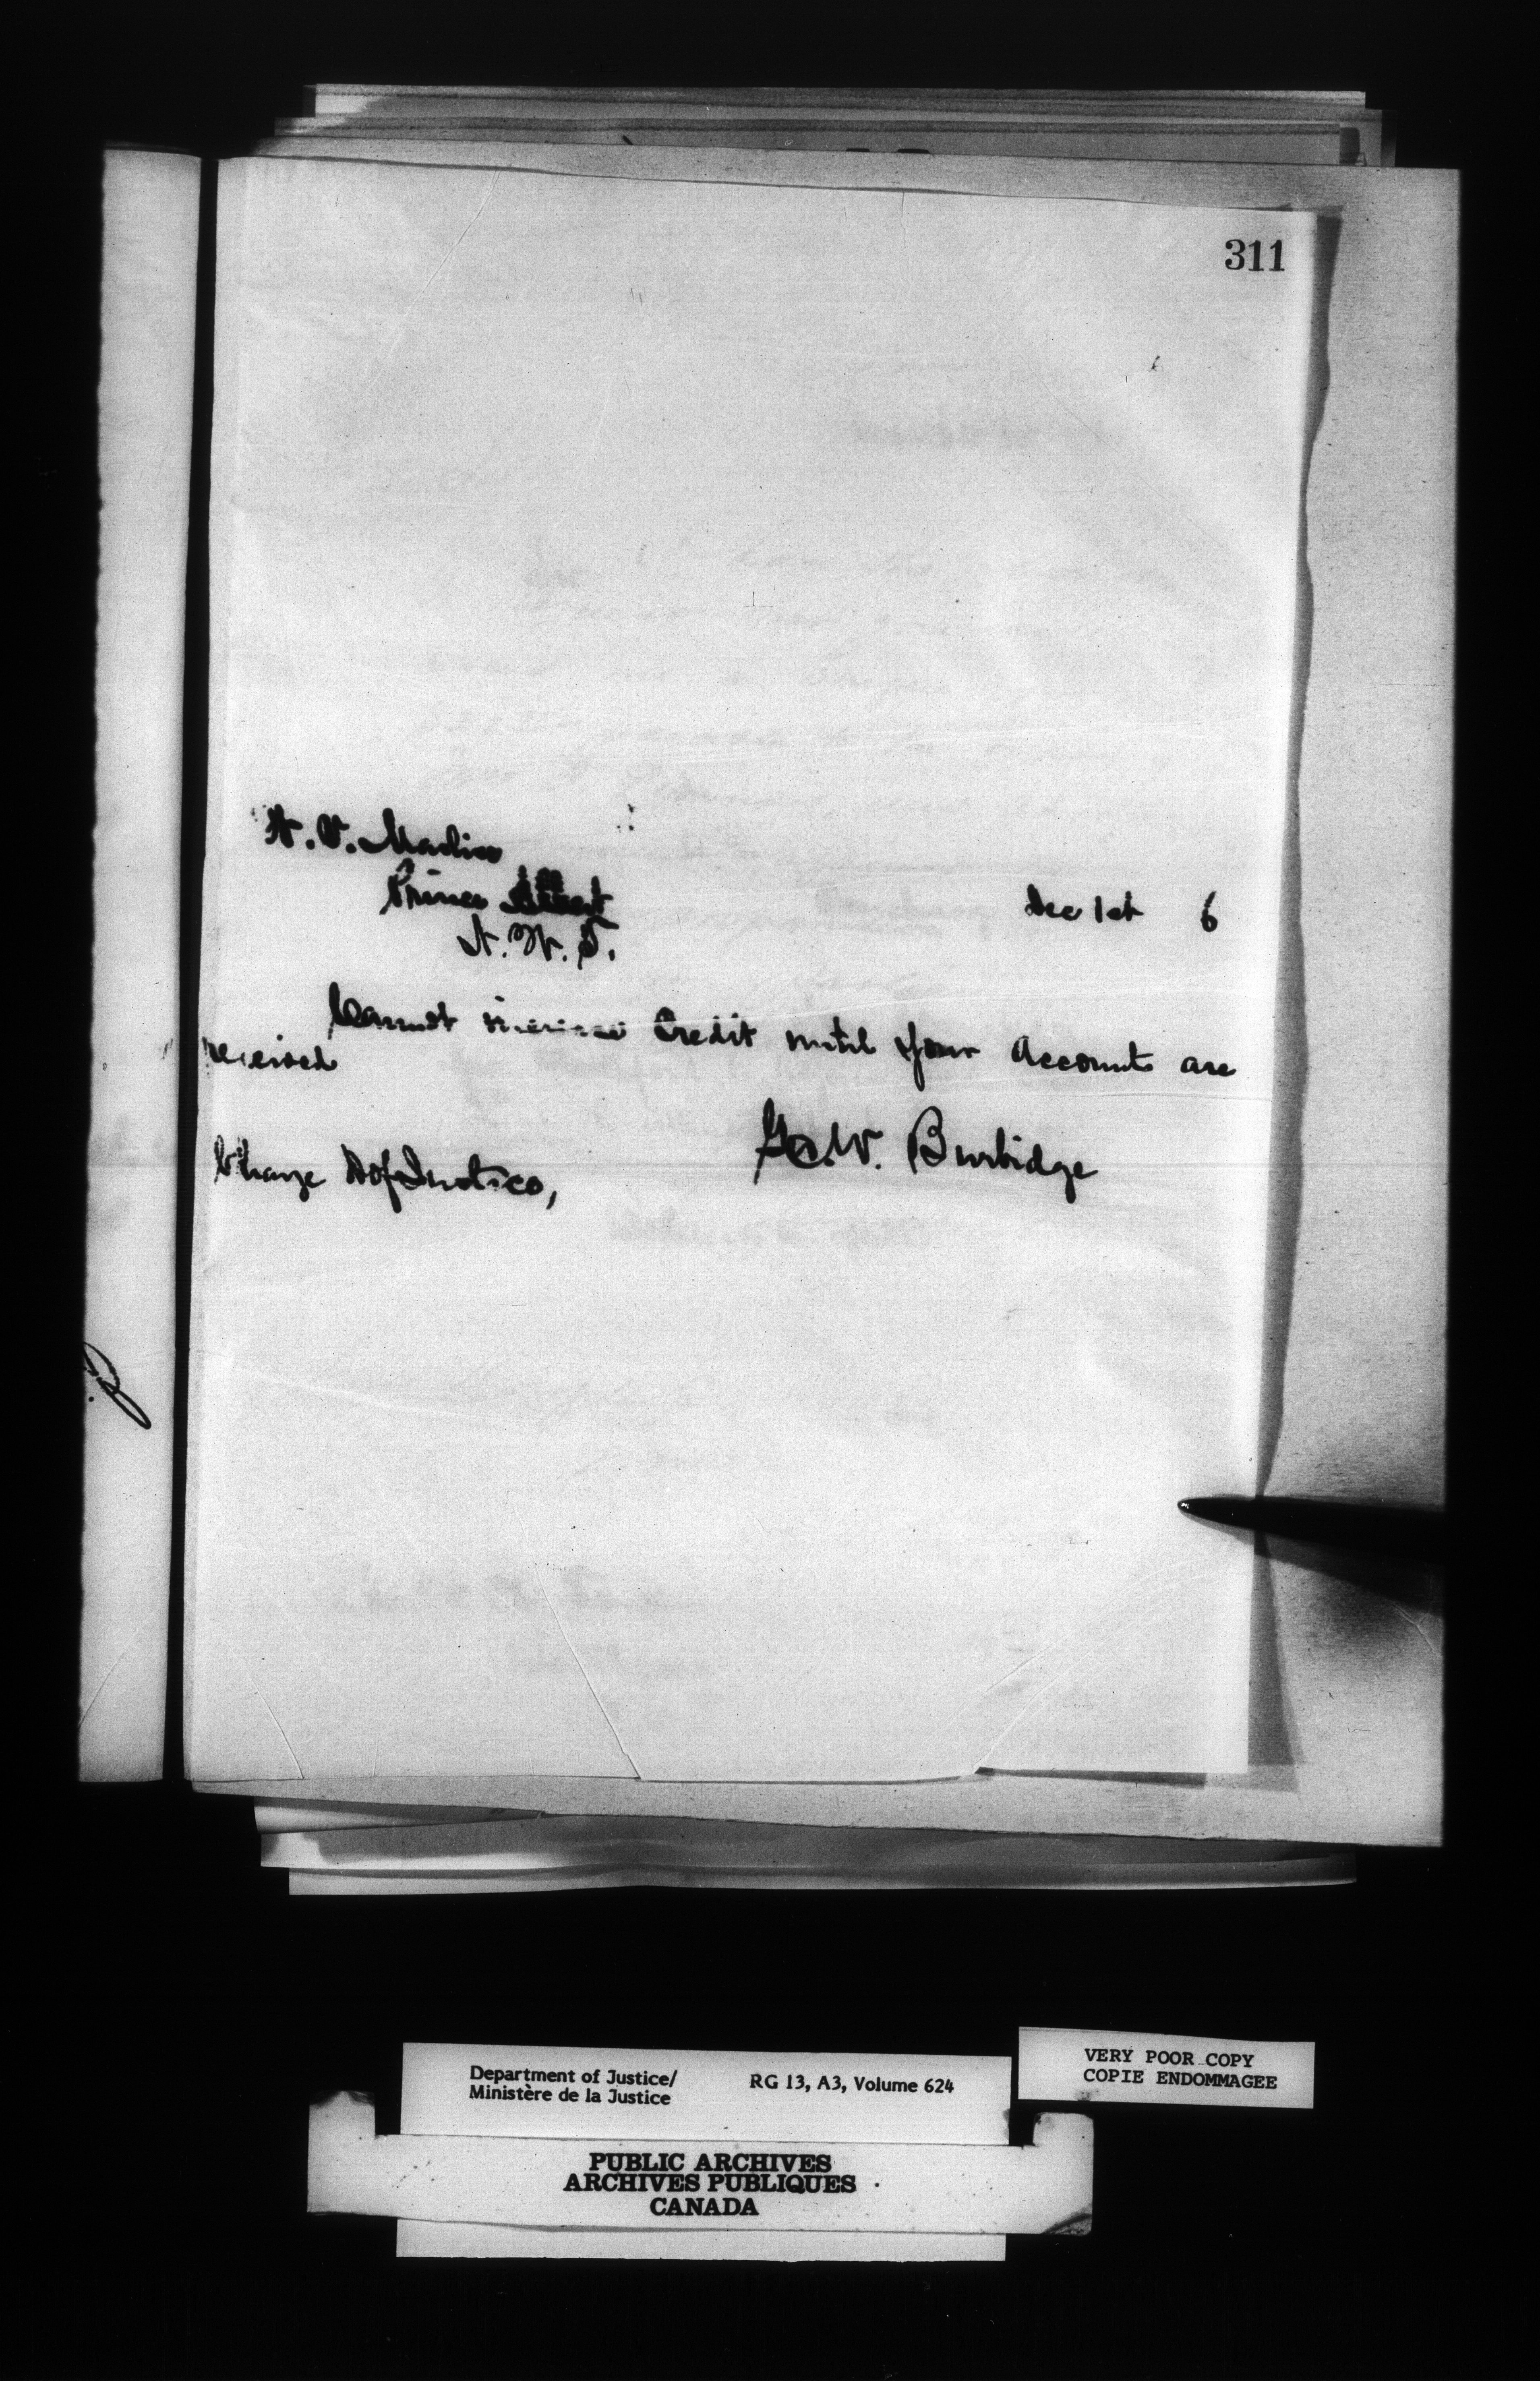 311
H. V. Maclise
Prince Albert
N. W. T.
Dec 1st 6
Cannot increase Credit until your Accounts are
received
Geo. W. Burbidge
Charge D of Justice,
Department of Justice/
Ministère de la Justice
RG 13, A3, Volume 624
VERY POOR COPY
COPIE ENDOMMAGEE
PUBLIC ARCHIVES
ARCHIVES PUBLIQUES
CANADA